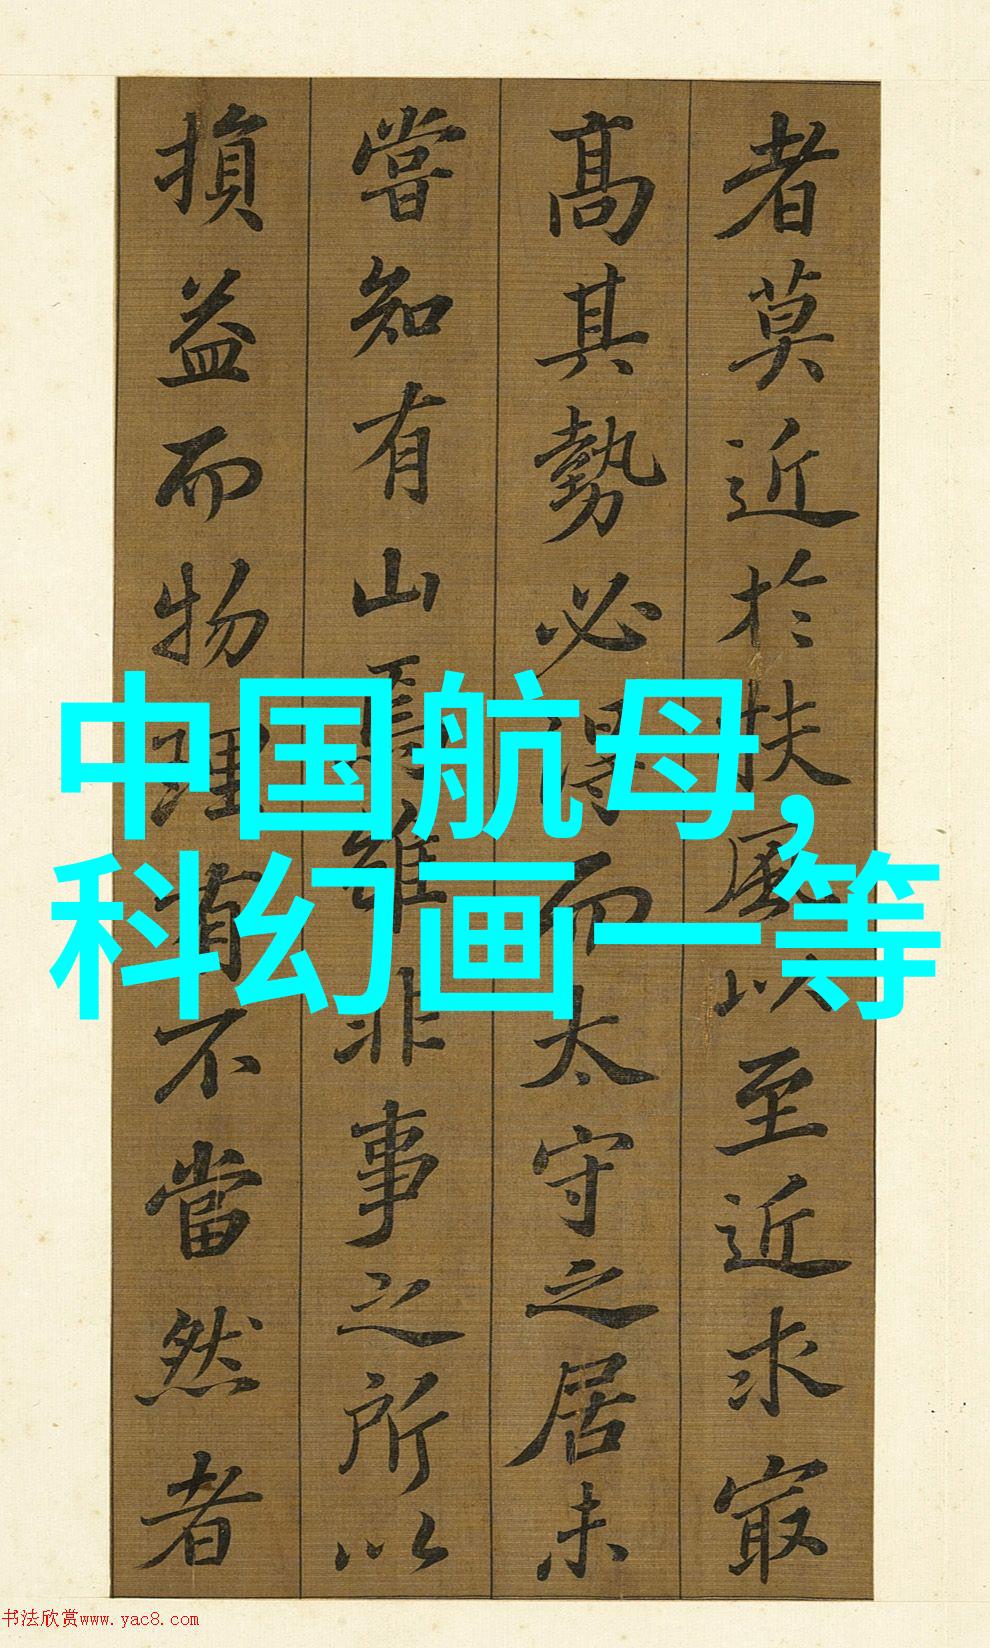 者莫近於扶風以至近求冣
高其勢必得而太守之居未
嘗知有山焉雖非事之所以
損益而物理有不當然者
中国航母,
科幻画一等
书法欣赏www.yac8.com